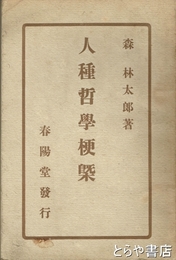 森林太郎著
人種哲學梗槩
春陽堂發行
とらや書店